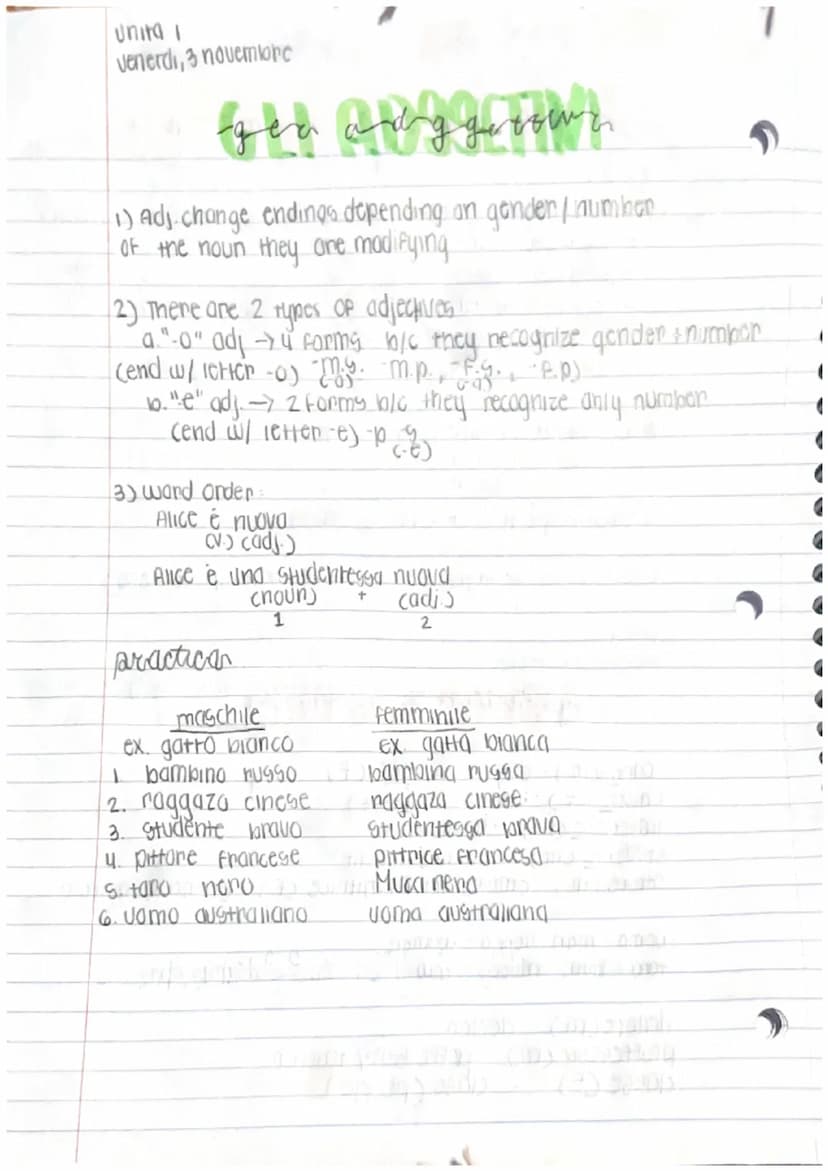 Unità 1
venerdì, 3 novembre
GLI AGGETTIVI
1) Adj. change endings depending on gender/number
of the noun they are modifying
2) There are 2 types of adjectives
a. "-o" adj → 4 forms b/c they recognize gender + number
(end w/ letter -o) -m.s. -m.p., -f.s., -f.p)
(-o) (-a)
b. "-e" adj. → 2 forms b/c they recognize only number
(end w/ letter -e) -p s
(-e)
3) word order:
Alice è nuova
(v.) (adj.)
Alice è una studentessa nuova
(noun) + (adj.)
1 2
practica
maschile femminile
ex. gatto bianco ex. gatta bianca
1. bambino russo bambina russa
2. raggazo cinese raggaza cinese
3. studente bravo studentessa brava
4. pittore francese pittrice francesa
5. toro nero Mucca nera
6. uomo australiano uoma australiana